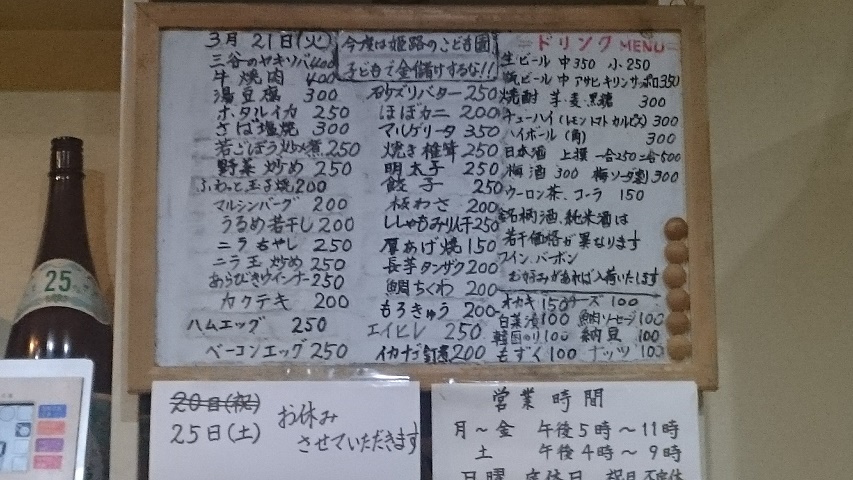 3月21日(火)
三谷のヤキソバ400
牛焼肉 400
湯豆腐 300
ホタルイカ 250
さば塩焼 300
若ごぼう炒め煮250
野菜炒め 250
ふわっと玉子焼200
マルシンハンバーグ 200
うるめ若干し200
ニラもやし 250
ニラ玉炒め250
あらびきウインナー250
カクテキ 200
ハムエッグ 250
ベーコンエッグ250
今度は姫路のこども園!
子どもで金儲けするな!!
砂ズリバター250
ほぼカニ 200
マルゲリータ 350
焼き椎茸 250
明太子 250
餃子 250
板わさ 200
ししゃもみりん干250
厚あげ焼150
長芋タンザク200
鯛ちくわ 200
もろきゅう 200
エイヒレ 250
イカナゴ釘煮200
ドリンク MENU
生ビール 中350 小250
瓶ビール 中 アサヒキリンサッポロ350
焼酎 芋・麦・黒糖 300
チューハイ(レモントマトカルピス) 300
ハイボール(角) 300
日本酒 上撰 一合250二合500
梅酒 300 梅ソーダ割300
ウーロン茶、コーラ 150
銘柄酒、純米酒は
若干価格が異なります
ワイン、バーボン
お好みがあれば入荷いたします
オカキ150 チーズ 100
白菜漬100 魚肉ソーセージ100
韓国のり100 納豆 100
もずく100 ナッツ 100
25
20日(祝)
25日(土)
お休み
させていただきます
営業時間
月～金 午後5時～11時
土 午後4時～9時
日曜 定休日 祝日不定休